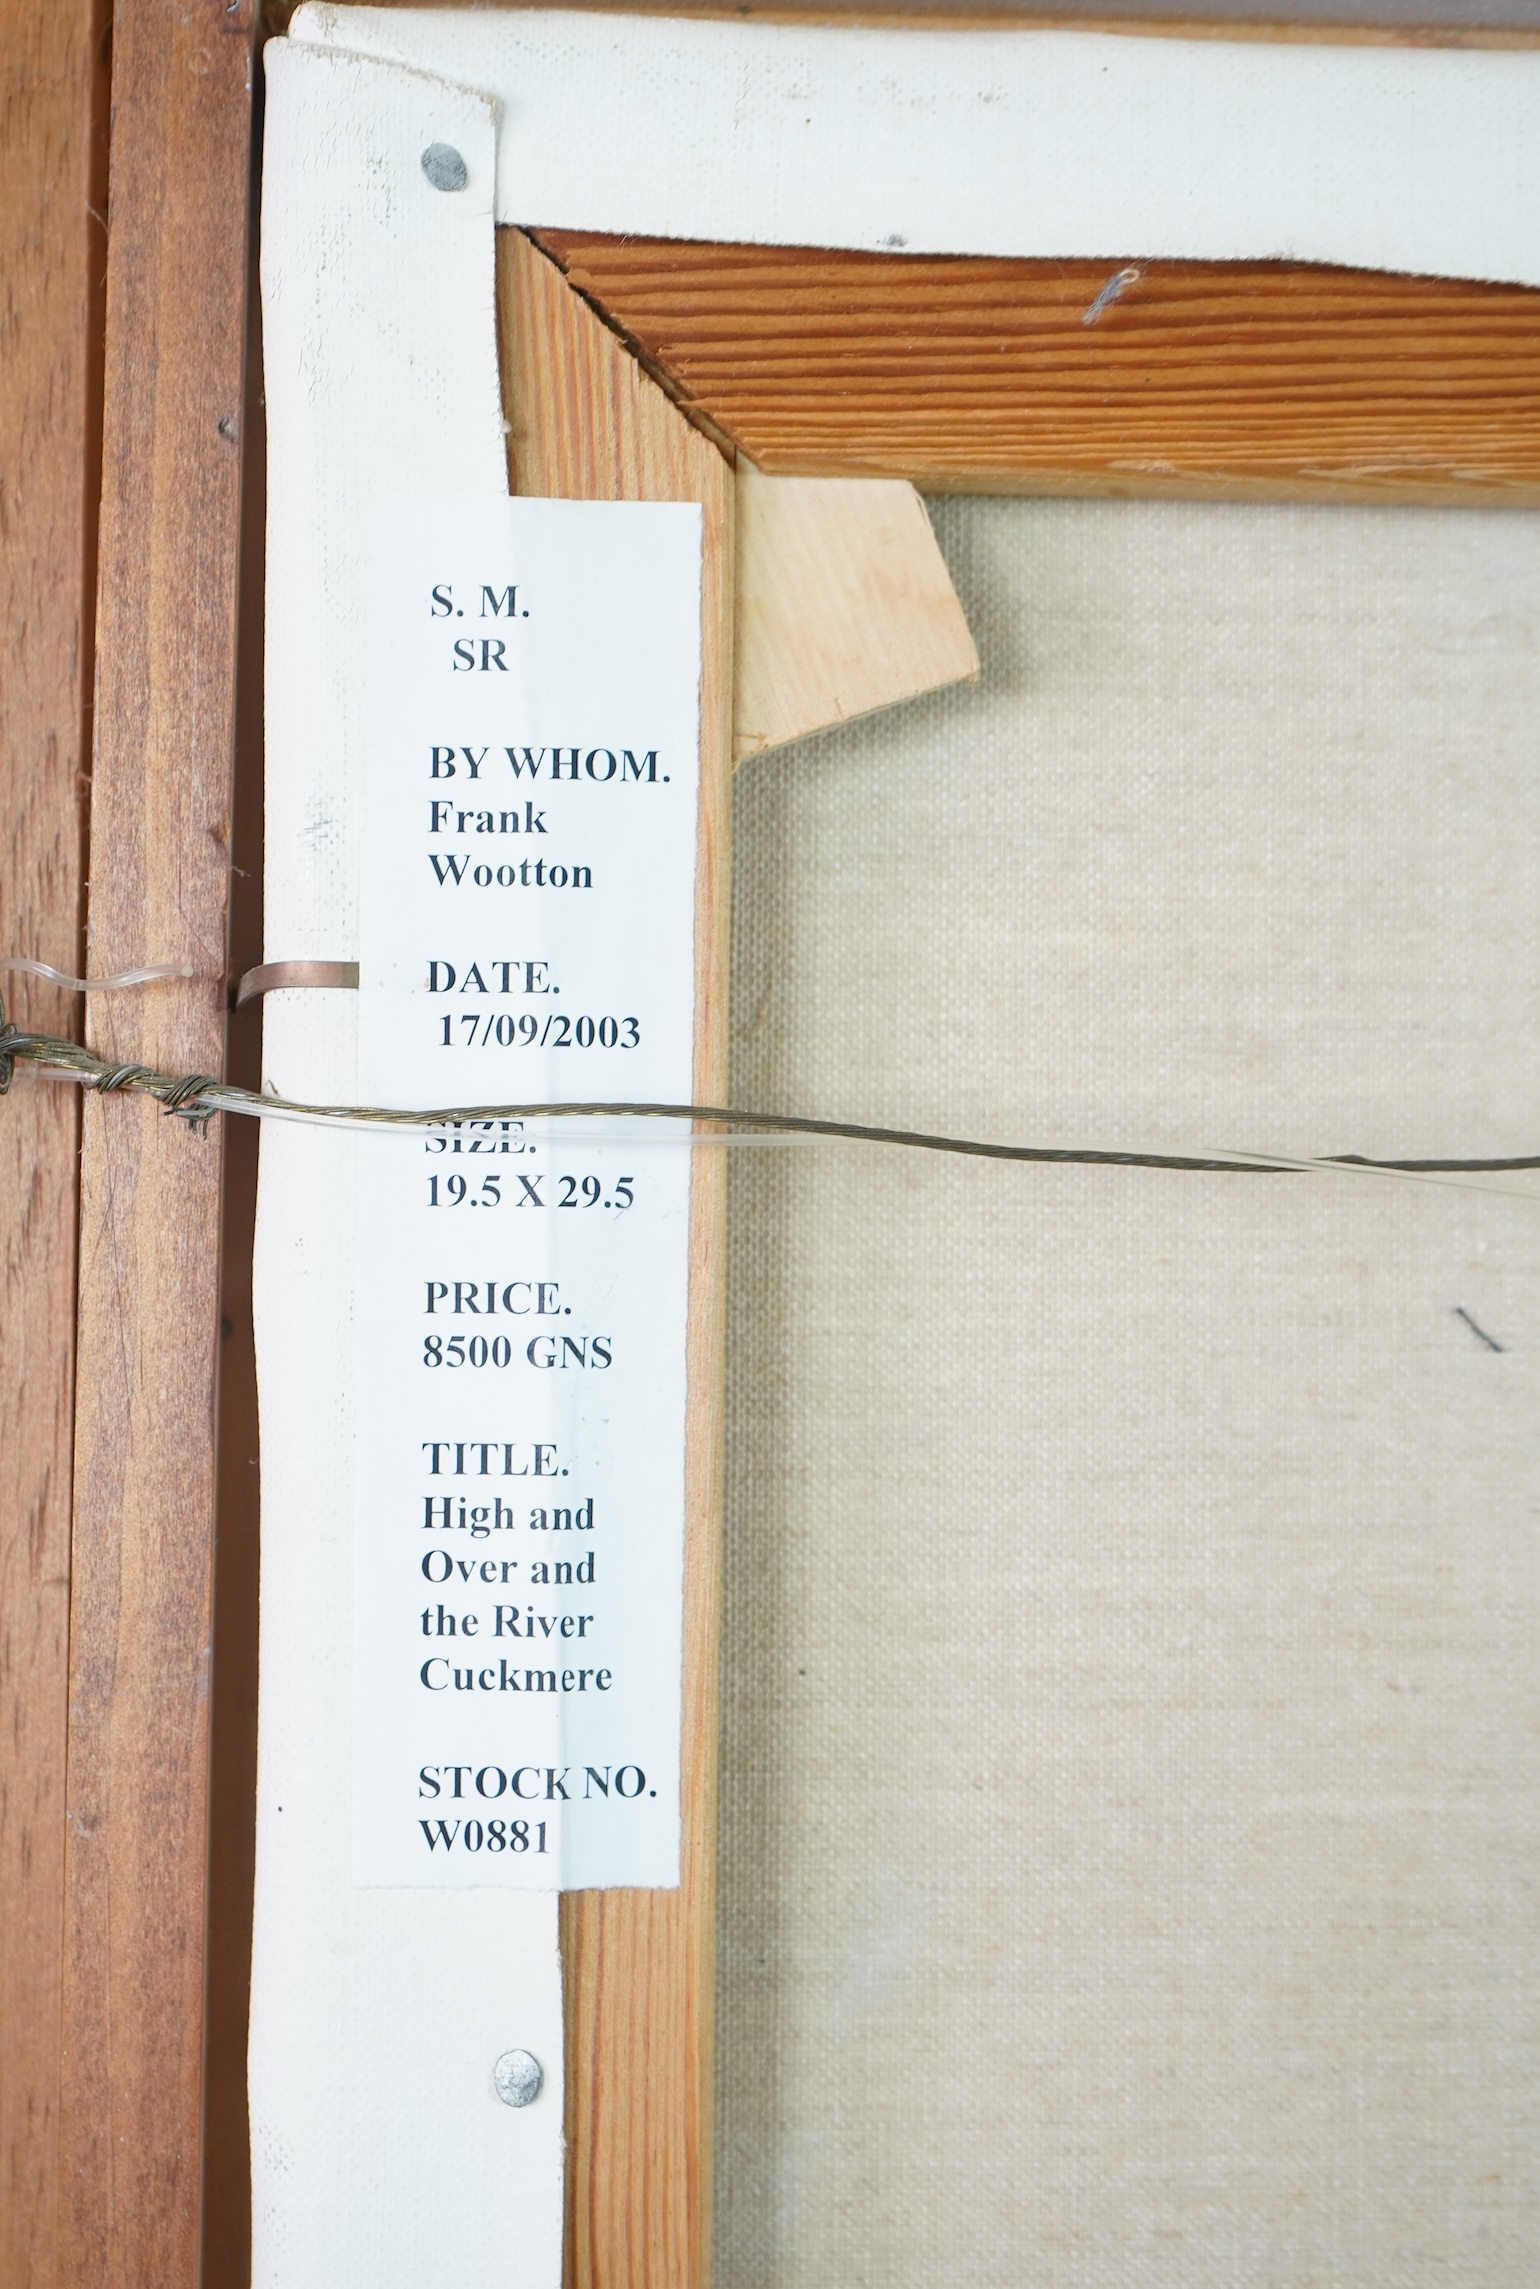 S. M.
SR
BY WHOM.
Frank
Wootton
DATE.
17/09/2003
SIZE.
19.5 X 29.5
PRICE.
8500 GNS
TITLE.
High and
Over and
the River
Cuckmere
STOCK NO.
W0881